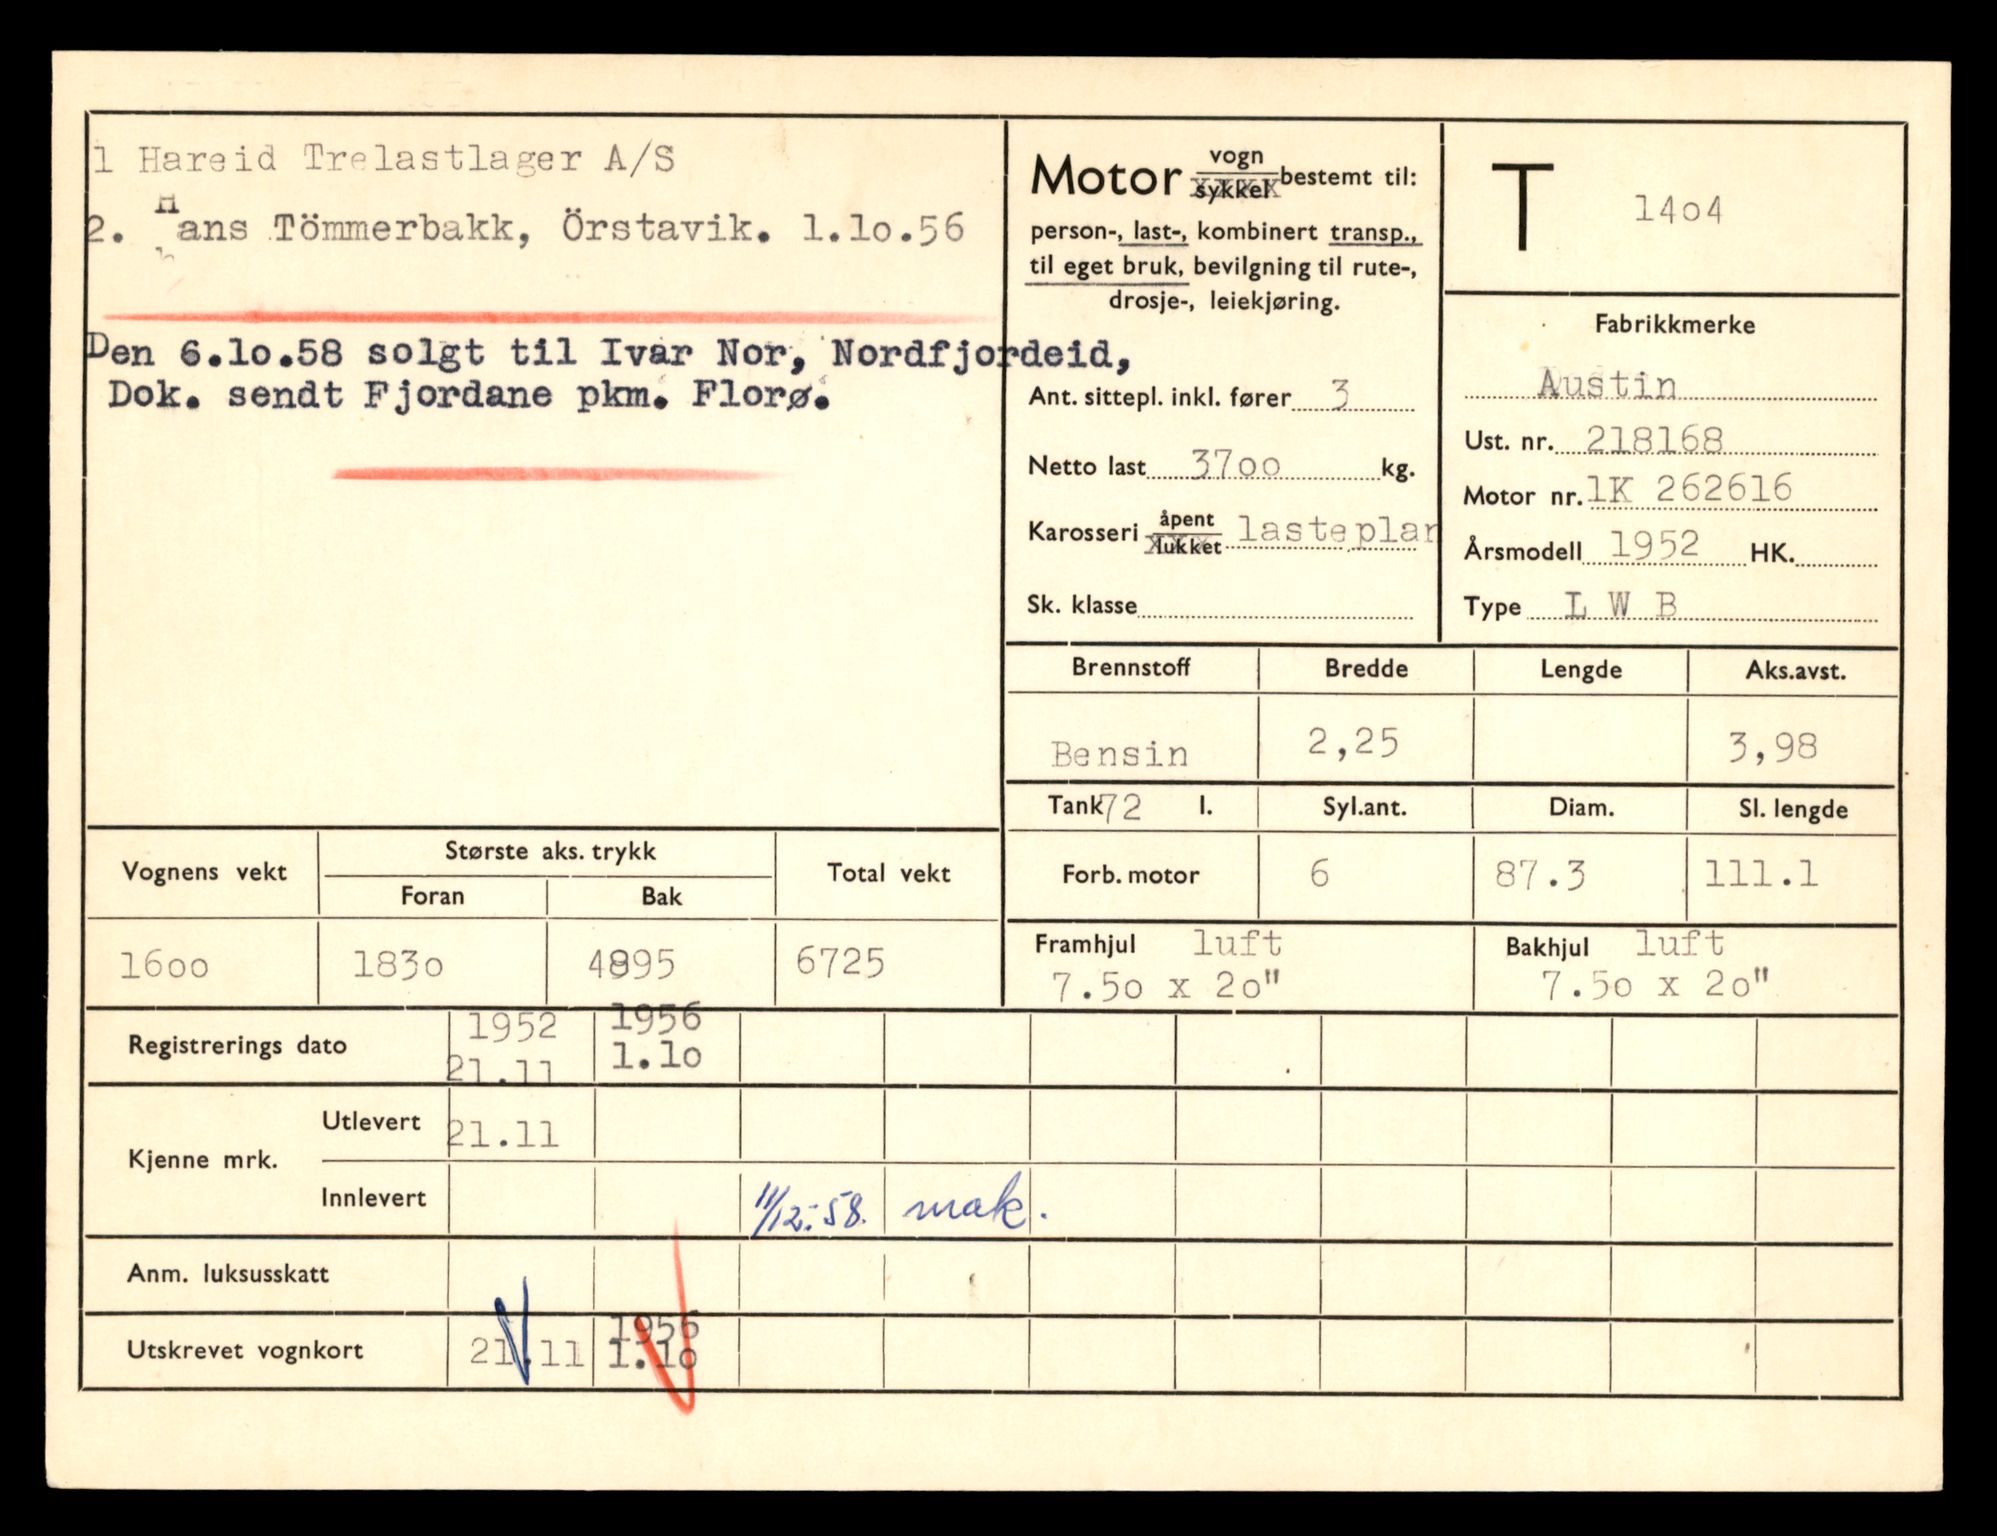 1 Hareid Trelastlager A/S
2. Hans Tömmerbakk, Örstavik. 1.1o.56
Den 6.1o.58 solgt til Ivar Nor, Nordfjordeid,
Dok. sendt Fjordane pkm. Florø.
Motor vogn/sykkel bestemt til:
person-, last-, kombinert transp.,
til eget bruk, bevilgning til rute-,
drosje-, leiekjøring.
Ant. sittepl. inkl. fører 3
Netto last 37oo kg.
Karosseri åpent/lukket lasteplan
Sk. klasse
T 14o4
Fabrikkmerke
Austin
Ust. nr. 218168
Motor nr. 1K 262616
Årsmodell 1952 HK.
Type L W B
Brennstoff Bredde Lengde Aks.avst.
Bensin 2,25 3,98
Tank 72 l. Syl.ant. Diam. Sl. lengde
Forb. motor 6 87.3 111.1
Framhjul luft Bakhjul luft
7.5o x 2o" 7.5o x 2o"
Vognens vekt Største aks. trykk Total vekt
Foran Bak
16oo 183o 4895 6725
Registrerings dato 1952 1956
21.11 1.1o
Kjenne mrk. Utlevert 21.11
Innlevert 11/12.-58. mak.
Anm. luksusskatt
Utskrevet vognkort 21.11 1956
1.1o